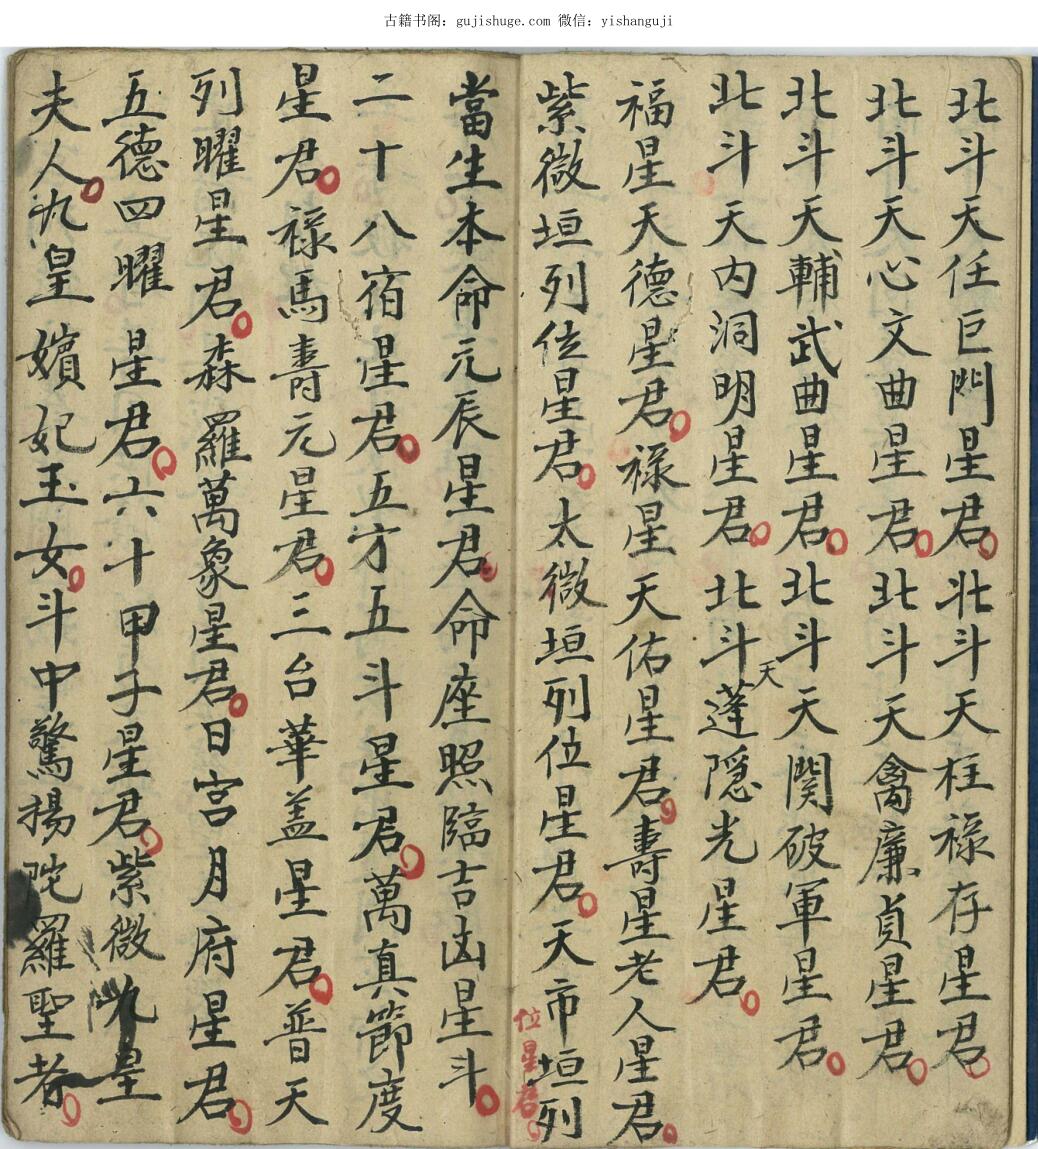 古籍书阁：gujishuge.com 微信：yishanguji
北斗天任巨門星君北斗天柱祿存星君
北斗天心文曲星君北斗天禽廉貞星君
北斗天輔武曲星君北斗天関破軍星君
北斗天内洞明星君北斗天蓬隱光星君
福星天德星君祿星天佑星君壽星老人星君
紫微垣列位星君太微垣列位星君天市垣列位星君
當生本命元辰星君命座照臨吉凶星斗
二十八宿星君五方五斗星君萬真節度
星君祿馬壽元星君三台華盖星君普天
列曜星君森羅萬象星君日宮月府星君
五德四曜星君六十甲子星君紫微九皇
夫人九皇嬪妃玉女斗中驚揚陀羅聖者